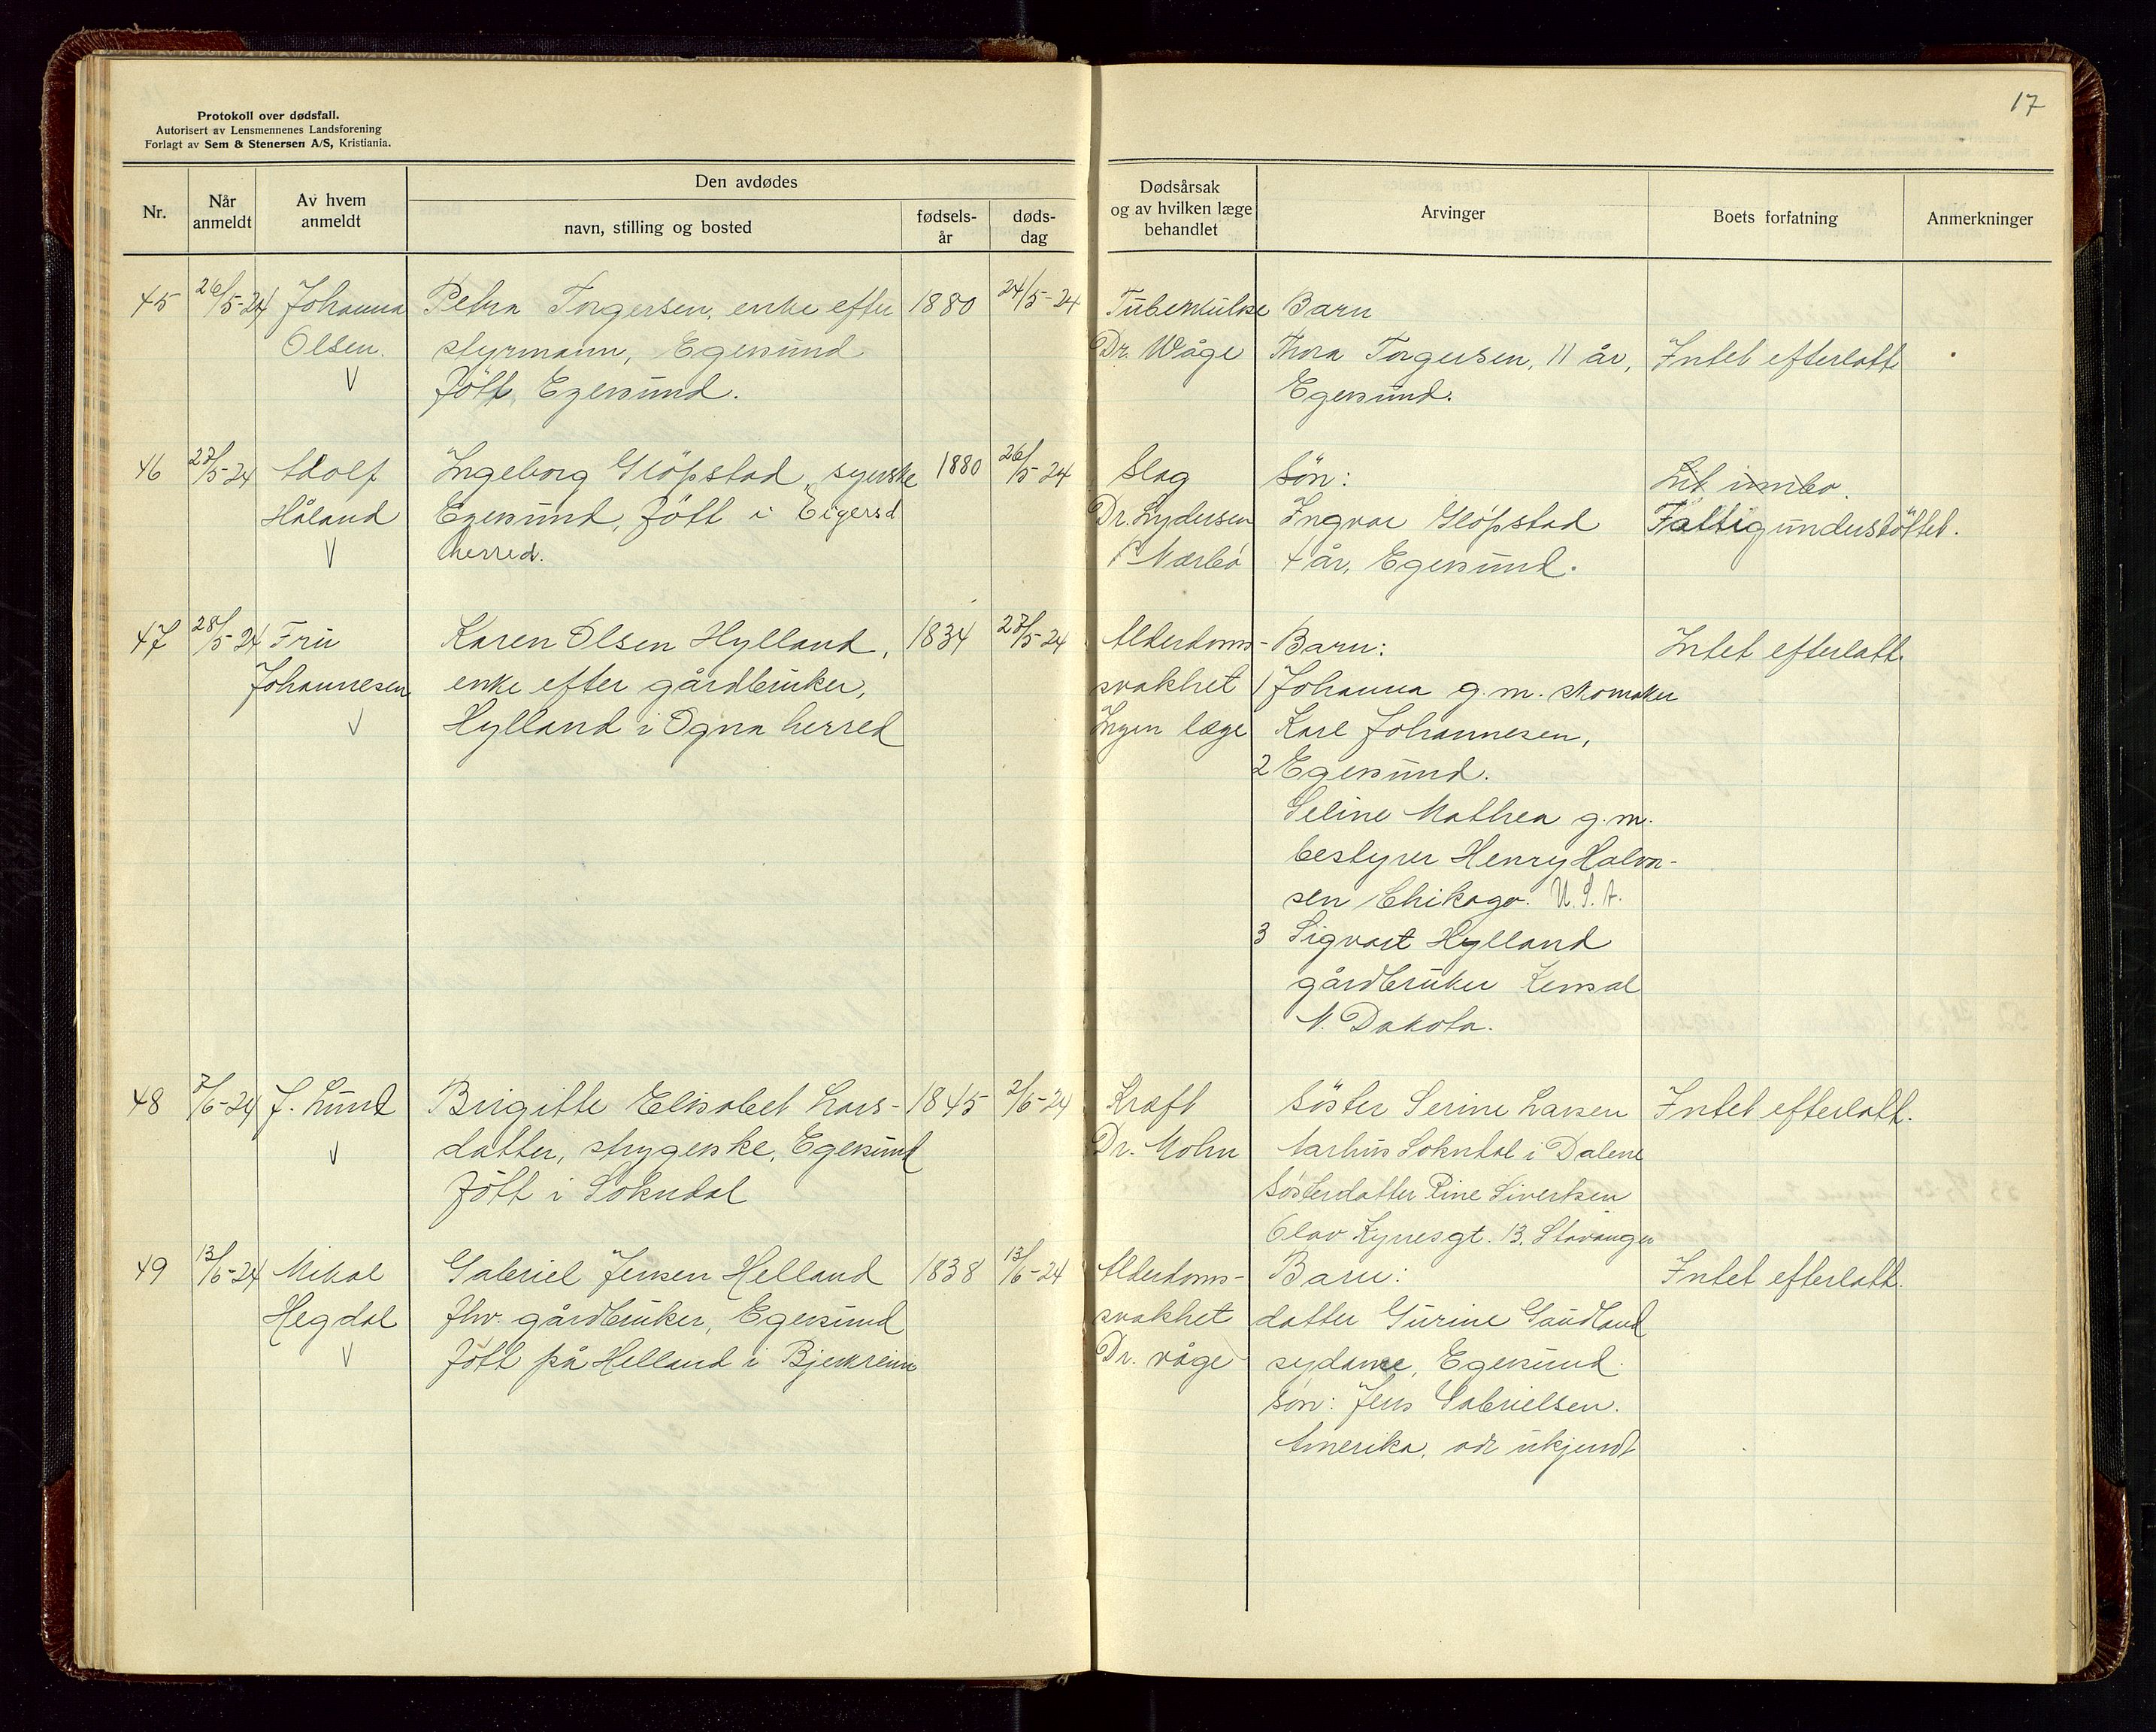 17
Protokoll over dødsfall.
Autorisert av Lensmennenes Landsforening
Forlagt av Sem & Stenersen A/S, Kristiania.
Nr.
Når anmeldt
Av hvem anmeldt
Den avdødes
navn, stilling og bosted
fødsels-år
døds-dag
Dødsårsak og av hvilken læge behandlet
Arvinger
Boets forfatning
Anmerkninger
45 26/5-24 Johanna Petra Torgersen, enke efter 1880 24/5-24 Tuberkulose Barn
Olsen. styrmann, Egersund Dr. Wåge Thora Torgersen, 11 år, Intet efterlatt
V Født, Egersund. Egersund.
46 27/5-24 Adolf Ingeborg Gløpstad, syerske 1880 26/5-24 Slag Søn: Lit innbo.
Håland Egersund, født i Eigersd Dr. Lydersen Ingvar Gløpstad Fattigunderstøttet.
V herred. Nærbø 4 år, Egersund.
47 28/5-24 Fru Karen Olsen Hylland, 1834 27/5-24 Alderdoms- Barn: Intet efterlatt.
Johannesen enke efter gårdbruker, svakhet 1 Johanna g.m. skomaker
V Hylland i Ogna herred Ingen læge Karl Johannesen,
2 Egersund.
Seline Mathea g.m.
bestyrer Henry Halvor-
sen Chikago. U.S.A.
3 Sigvart Hylland
gårdbruker Kensal
N. Dakota.
48 7/6-24 J. Lund Birgitte Elisabet Lars- 1845 2/6-24 Kræft Søster Serine Larsen Intet efterlatt.
V datter, strygerske, Egersund Dr. Mohn Aarhus Sokndal i Dalene
født i Sokndal Søsterdatter Rine Sivertsen
Olav Kyrresgt. 13. Stavanger
49 13/6-24 Mikal Gabriel Jensen Helland 1838 13/6-24 Alderdoms- Barn: Intet efterlatt.
Hegdal fhv. gårdbruker, Egersund svakhet datter Gurine Gaudland
V født på Helland i Bjerkreim Dr. våge sydame, Egersund.
søn: Jens Gabrielsen.
Amerika, adr ukjendt